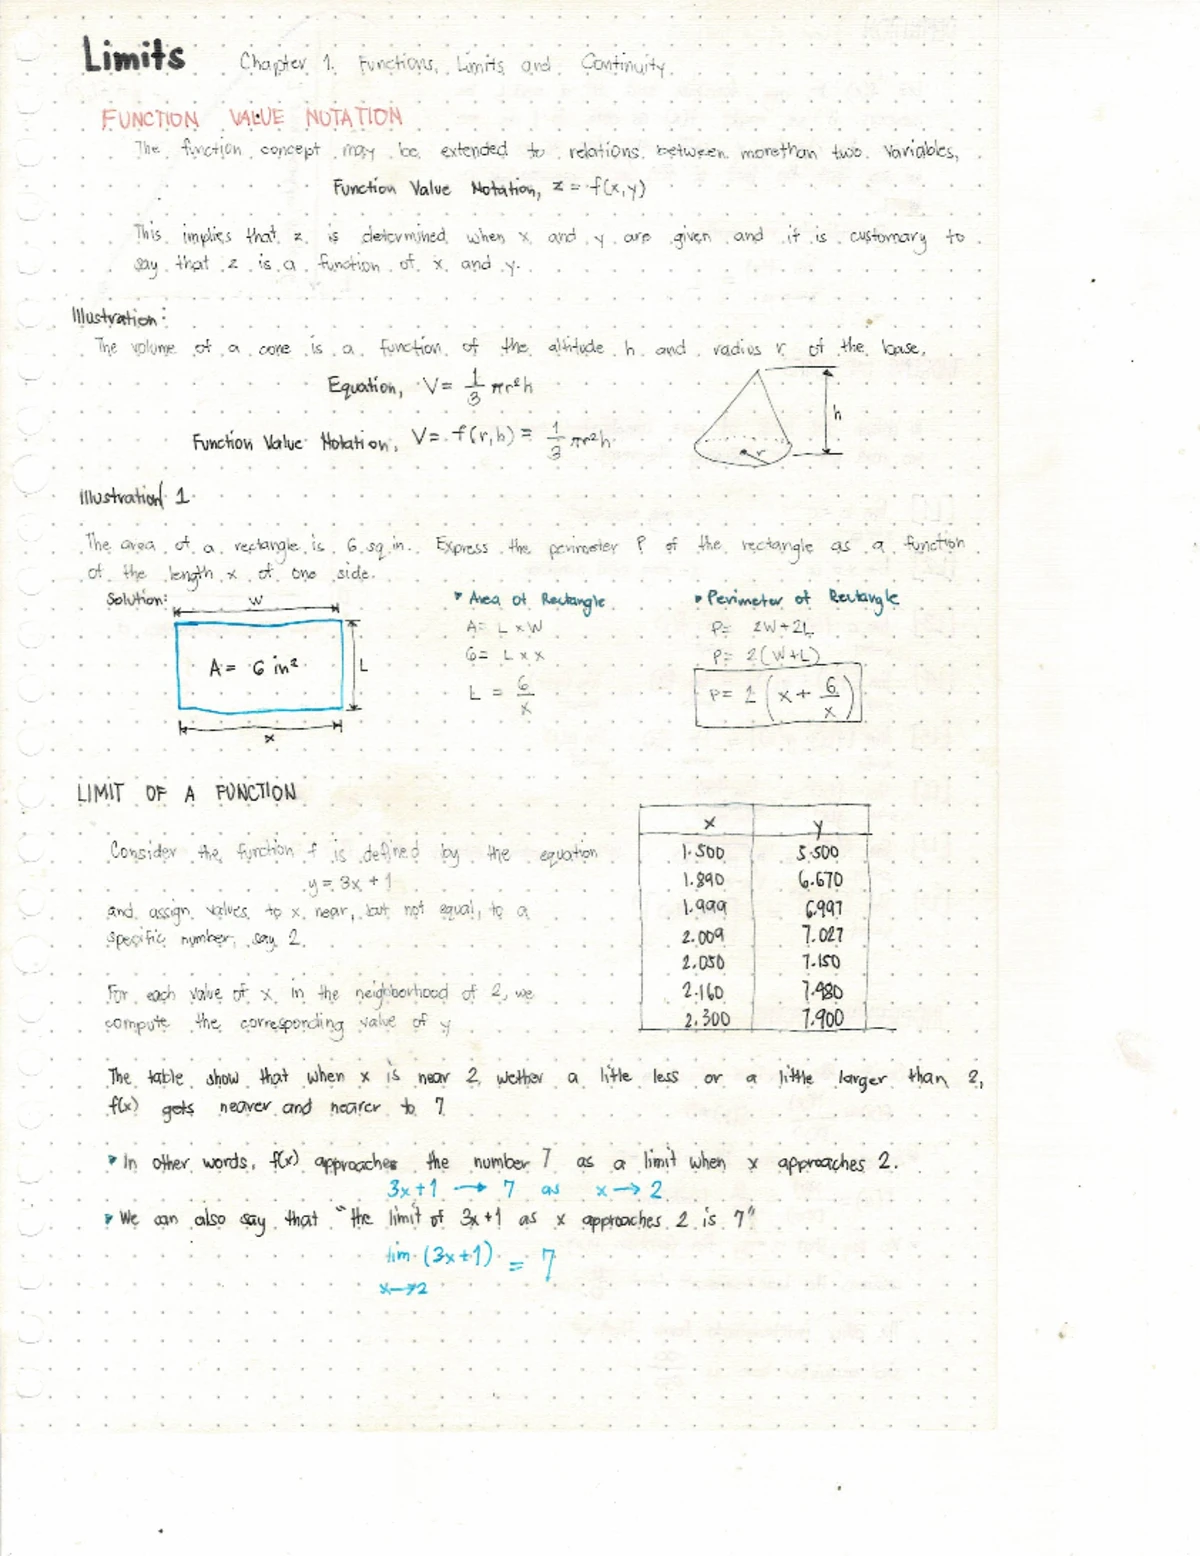 Limits Chapter 1. Functions, Limits and Continuity.
FUNCTION VALUE NOTATION
The function concept may be extended to relations between morethan two variables,
Function Value Notation, z = f(x,y)
This implies that z is determined when x and y are given and it is customary to
say that z is a function of x and y.
Illustration:
The volume of a cone is a function of the altitude h and radius r of the base.
Equation, V = 1/3 πr²h
h
r
Function Value Notation, V = f(r,h) = 1/3 πr²h
Illustration 1
The area of a rectangle is 6 sq in. Express the perimeter P of the rectangle as a function
of the length x of one side.
Solution:
W
A = 6 in²
L
x
Area of Rectangle
A = L x W
6 = L x x
L = 6/x
Perimeter of Rectangle
P = 2W + 2L
P = 2(W+L)
P = 2(x + 6/x)
LIMIT OF A FUNCTION
Consider the function f is defined by the equation
y = 3x + 1
and assign values to x near, but not equal, to a
specific number, say 2.
For each value of x in the neighborhood of 2, we
compute the corresponding value of y
x y
1.500 5.500
1.890 6.670
1.999 6.997
2.009 7.027
2.050 7.150
2.160 7.480
2.300 7.900
The table show that when x is near 2, wether a little less or a little larger than 2,
f(x) gets nearer and nearer to 7
In other words, f(x) approaches the number 7 as a limit when x approaches 2.
3x+1 → 7 as x → 2
We can also say that "the limit of 3x+1 as x approaches 2 is 7"
lim (3x+1) = 7
x→2